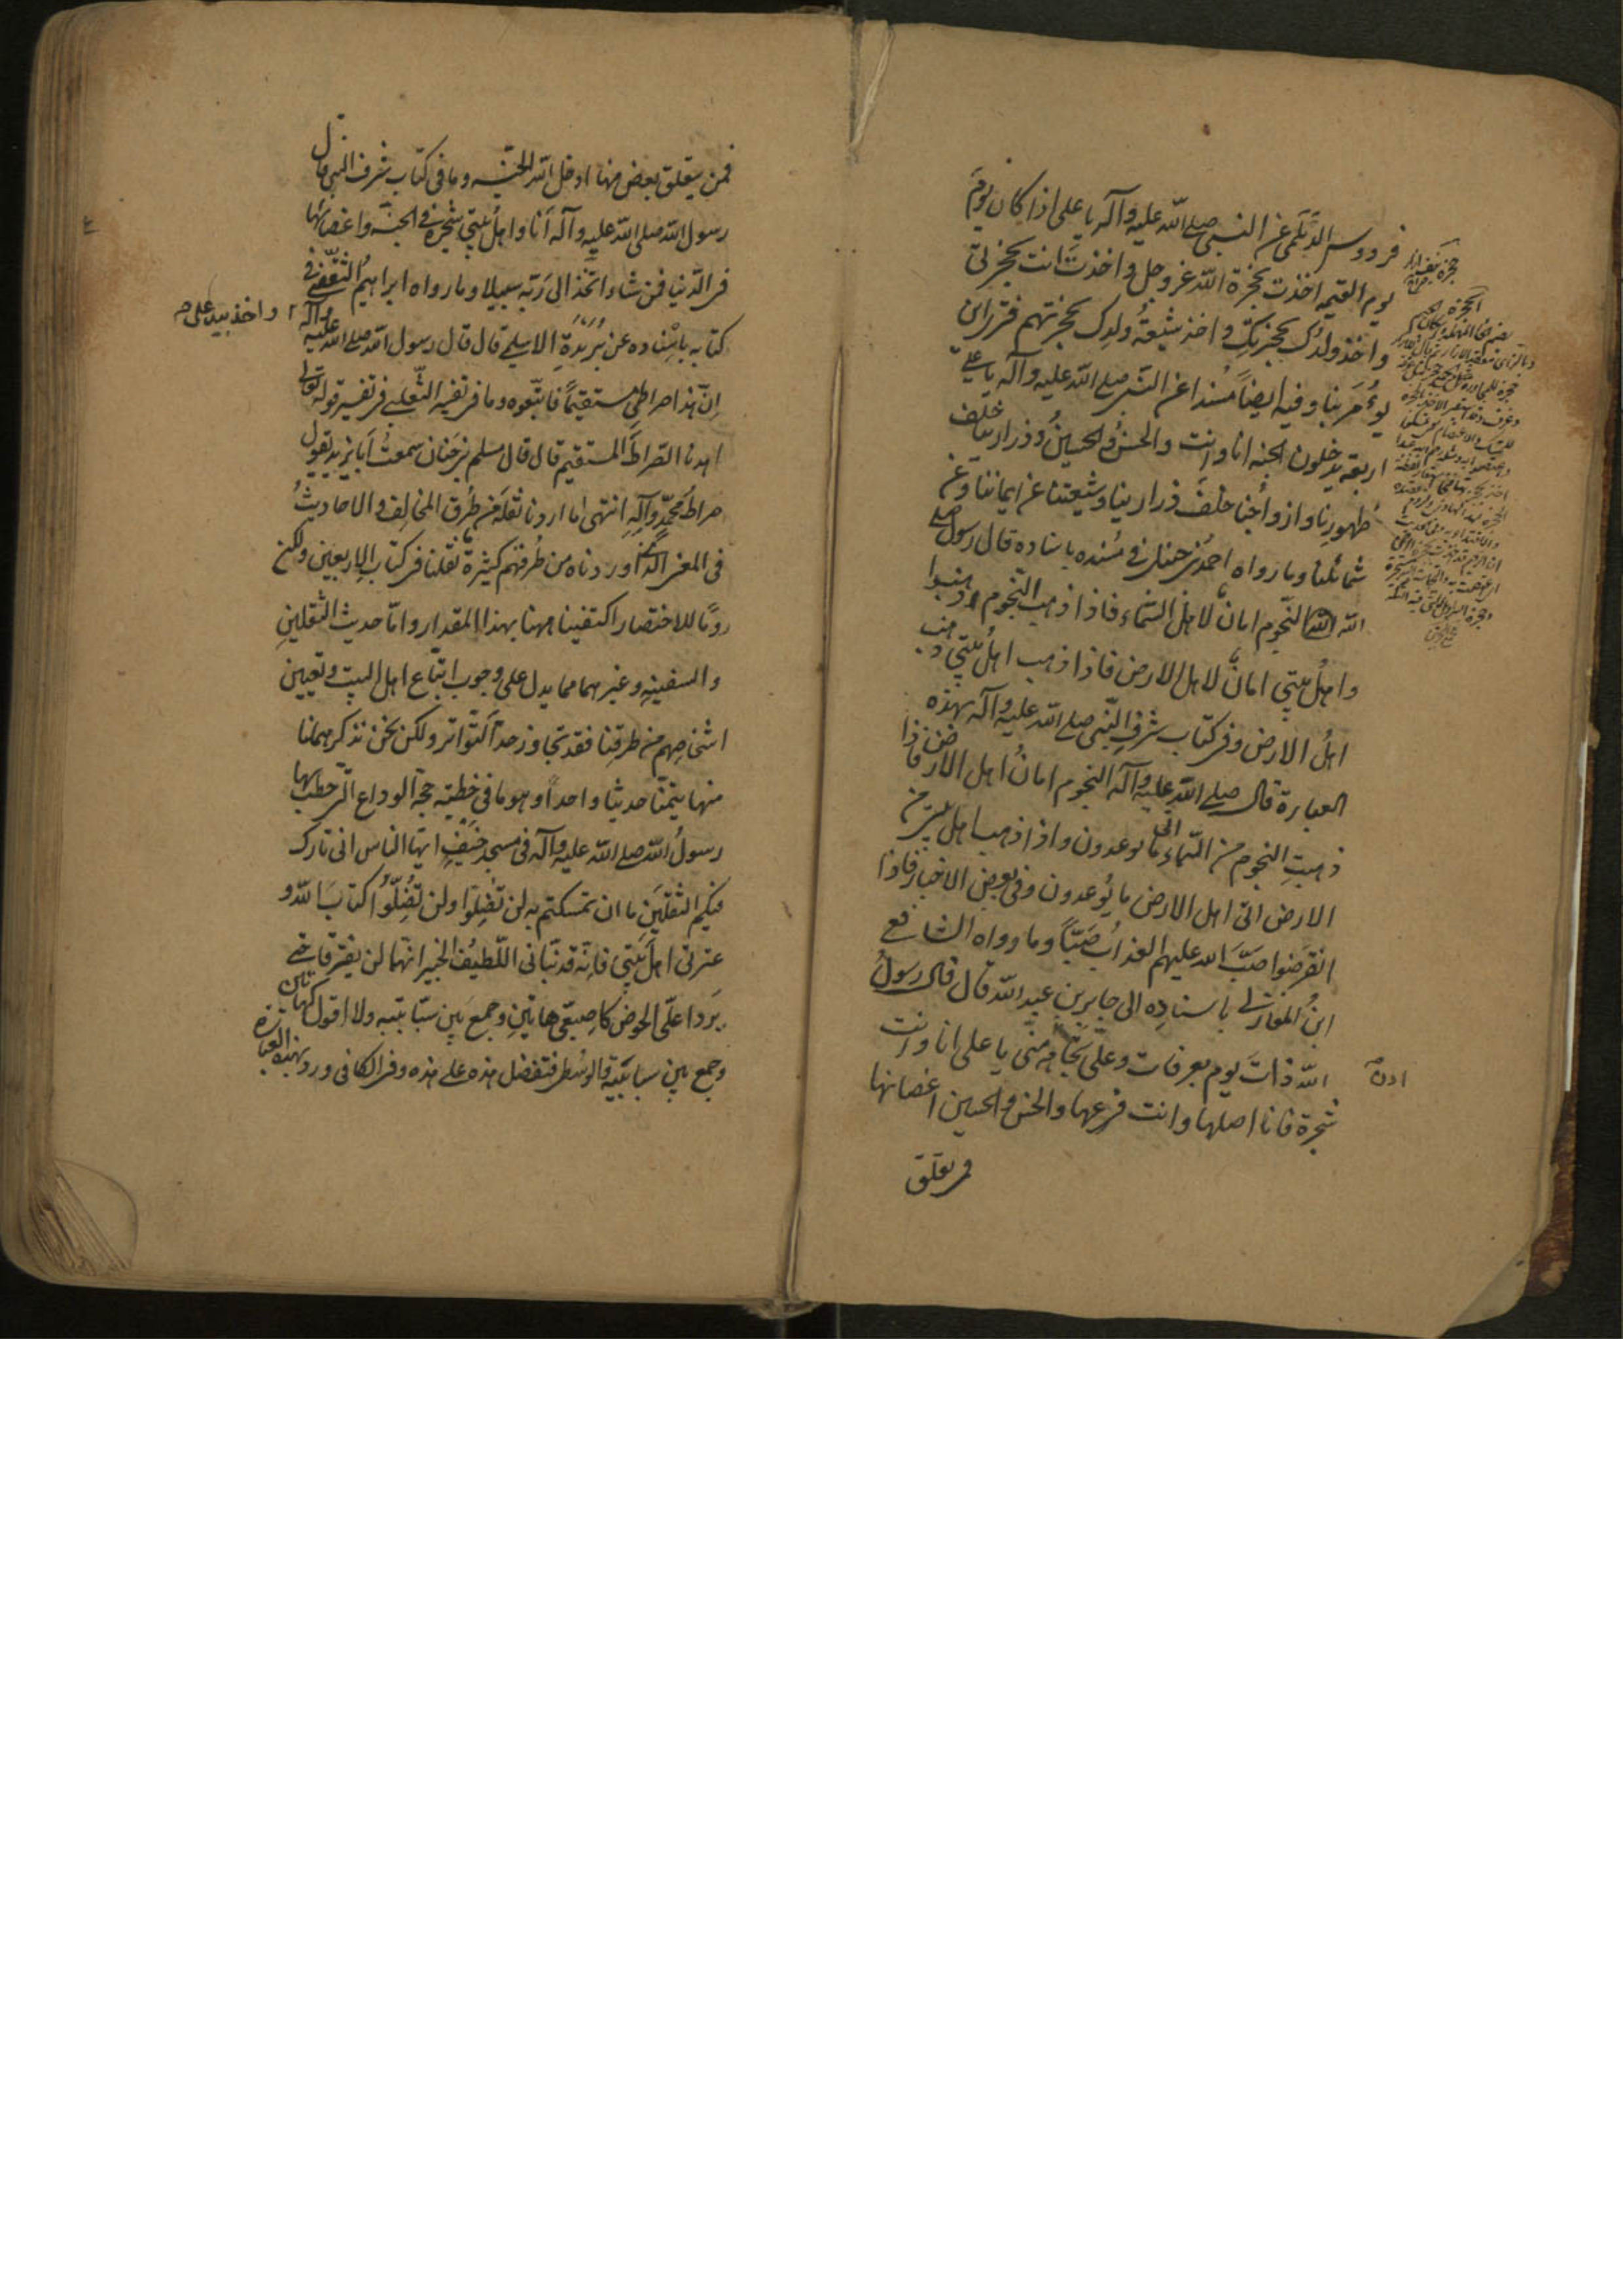 فردوس الديلمي عن النبي صلى الله عليه وآله يا علي اذا كان يوم
يوم القيمه اخذت بحجزة الله عز وجل واخذت انت بحجزتي
واخذ ولدك بحجزتك واخذ شيعة ولدك بحجزتهم فترى اين
يؤمر بنا وفيه ايضاً مسندا عن النبي صلى الله عليه وآله يا علي
اربعة يدخلون الجنه انا وانت والحسن والحسين وذرارينا خلف
ظهورنا وازواجنا خلف ذرارينا وشيعتنا عن ايماننا وعن
شمائلنا وما رواه احمد بن حنبل في مسنده باسناده قال رسول
الله النجوم امان لاهل السماء فاذا ذهب النجوم ذهبوا
واهل بيتي امان لاهل الارض فاذا ذهب اهل بيتي ذهب
اهل الارض وفي كتاب شرف النبي صلى الله عليه وآله بهذه
العبارة قال صلى الله عليه وآله النجوم امان اهل الارض فاذا
ذهبت النجوم من السماء اتى ما يوعدون واذا ذهب اهل بيتي من
الارض اتى اهل الارض ما يوعدون وفي بعض الاخبار فاذا
انقرضوا صب الله عليهم العذاب صبّاً وما رواه الشافعي
ابن المغازلي باسناده الى جابر بن عبد الله قال قال رسول
الله ذات يوم بعرفات وعلي تجاهه منّي يا علي انا وانت
شجرة فانا اصلها وانت فرعها والحسن والحسين اغصانها
فمن تعلق
ادن
فمن يتعلق بغصن منها ادخل الله الجنه وما في كتاب شرف النبي قال
رسول الله صلى الله عليه وآله انا واهل بيتي شجرة في الجنه واغصانها
في الدنيا فمن شاء اتخذ الى ربه سبيلا وما رواه ابراهيم الثقفي في
كتابه باسناده عن بريدة الاسلمي قال قال رسول الله صلى الله عليه وآله
واخذ بيد علي
ان هذا صراطي مستقيماً فاتبعوه وما في تفسير الثعلبي في تفسير قوله تعالى
اهدنا الصراط المستقيم قال قال مسلم بن حنان سمعت ابا يزيد يقول
صراط محمد وآله انتهى ما اردنا نقله من طرق المخالف والاحاديث
في المعنى الذي اوردناه من طرقهم كثيرة نقلنا في كتاب الاربعين ولكن
روماً للاختصار اكتفينا ههنا بهذا المقدار واما حديث الثقلين
والسفينه وغيرهما مما يدل على وجوب اتباع اهل البيت وتعيين
اشخاصهم من طرقنا فقد تجاوز حد التواتر ولكن نحن نذكر ههنا
منها تيمّنا حديثا واحداً وهو ما في خطبته حجة الوداع التي خطبها
رسول الله صلى الله عليه وآله في مسجد خيف ايها الناس اني تارك
فيكم الثقلين ما ان تمسكتم به لن تضلوا ولن تضلوا كتاب الله و
عترتي اهل بيتي فانه قد نبأني اللطيف الخبير انهما لن يفترقا حتى
يردا علي الحوض كاصبعي هاتين وجمع بين سبابتيه ولا اقول كهاتين
وجمع بين سبابتيه والوسطى فتفضل هذه على هذه وفي الكافي ورد بهذه العبارة